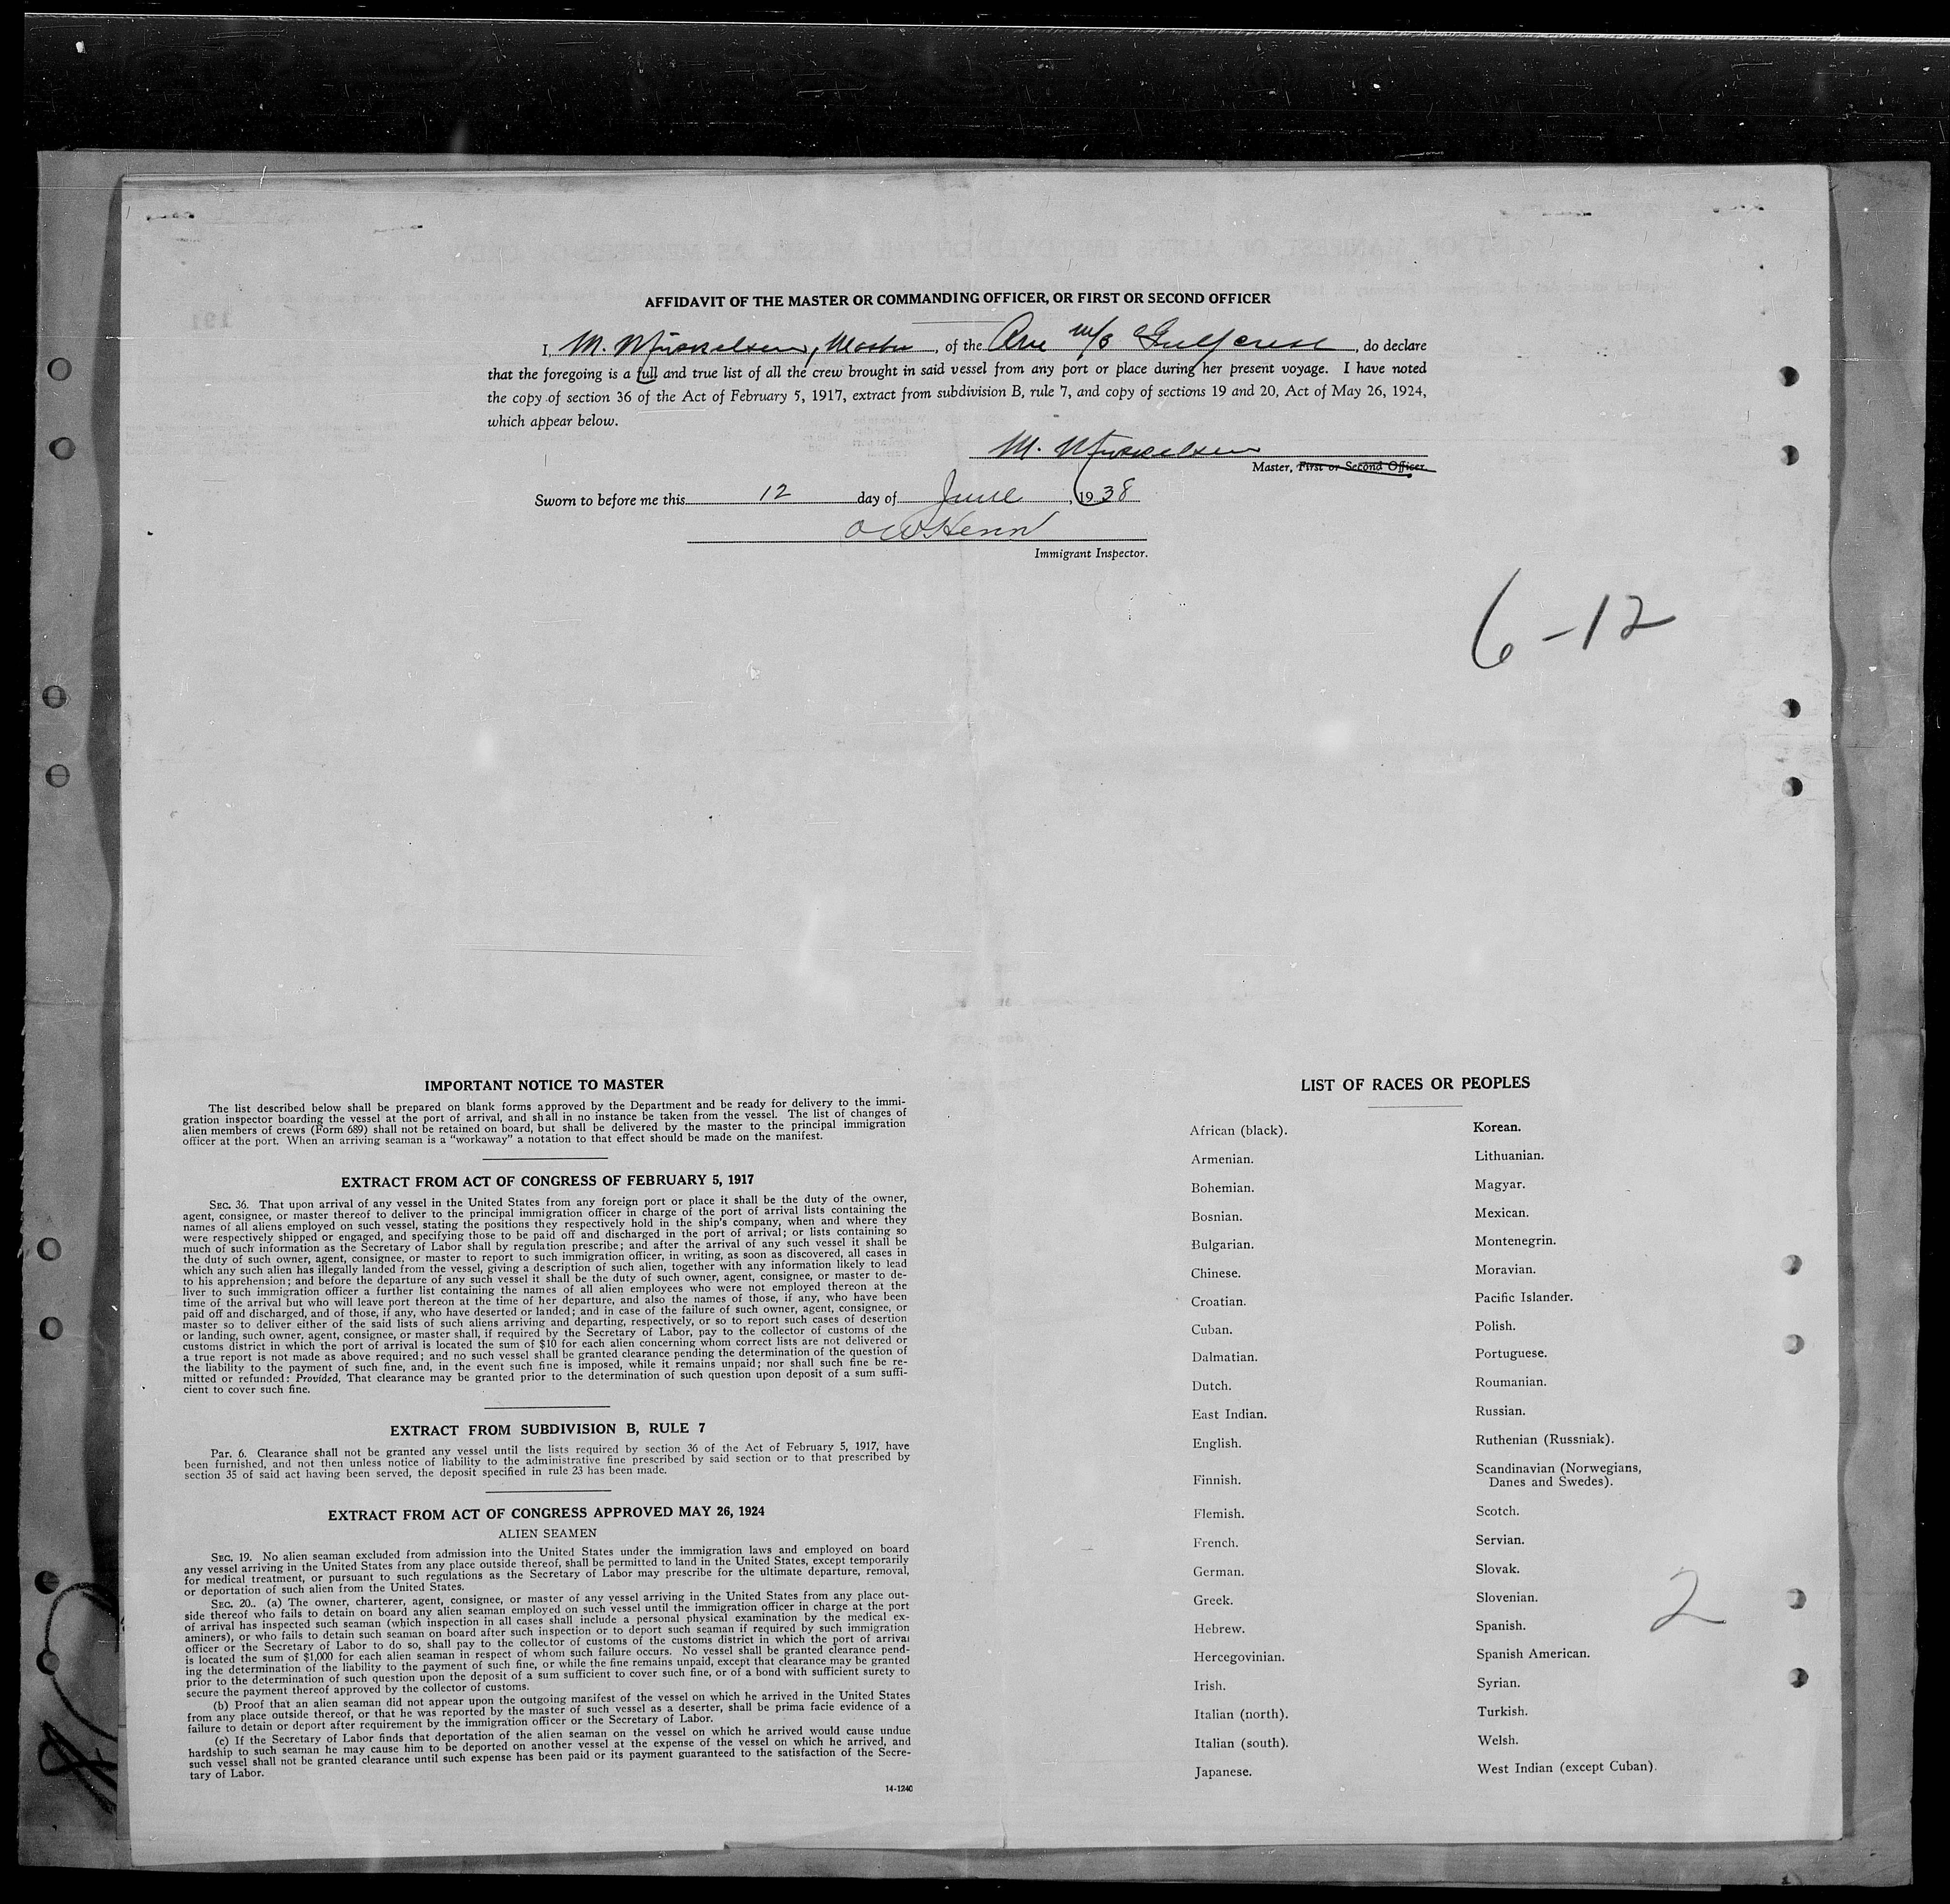 AFFIDAVIT OF THE MASTER OR COMMANDING OFFICER, OR FIRST OR SECOND OFFICER
I, M. Mikkelsen, Master, of the Am m/s Gulfcrest, do declare
that the foregoing is a full and true list of all the crew brought in said vessel from any port or place during her present voyage. I have noted
the copy of section 36 of the Act of February 5, 1917, extract from subdivision B, rule 7, and copy of sections 19 and 20, Act of May 26, 1924,
which appear below.
M. Mikkelsen
Master, First or Second Officer.
Sworn to before me this 12 day of June, 1938
Immigrant Inspector.
6-12
IMPORTANT NOTICE TO MASTER
The list described below shall be prepared on blank forms approved by the Department and be ready for delivery to the immi-
gration inspector boarding the vessel at the port of arrival, and shall in no instance be taken from the vessel. The list of changes of
alien members of crews (Form 689) shall not be retained on board, but shall be delivered by the master to the principal immigration
officer at the port. When an arriving seaman is a "workaway" a notation to that effect should be made on the manifest.
EXTRACT FROM ACT OF CONGRESS OF FEBRUARY 5, 1917
SEC. 36. That upon arrival of any vessel in the United States from any foreign port or place it shall be the duty of the owner,
agent, consignee, or master thereof to deliver to the principal immigration officer in charge of the port of arrival lists containing the
names of all aliens employed on such vessel, stating the positions they respectively hold in the ship's company, when and where they
were respectively shipped or engaged, and specifying those to be paid off and discharged in the port of arrival; or lists containing so
much of such information as the Secretary of Labor shall by regulation prescribe; and after the arrival of any such vessel it shall be
the duty of such owner, agent, consignee, or master to report to such immigration officer, in writing, as soon as discovered, all cases in
which any such alien has illegally landed from the vessel, giving a description of such alien, together with any information likely to lead
to his apprehension; and before the departure of any such vessel it shall be the duty of such owner, agent, consignee, or master to de-
liver to such immigration officer a further list containing the names of all alien employees who were not employed thereon at the
time of the arrival but who will leave port thereon at the time of her departure, and also the names of those, if any, who have been
paid off and discharged, and of those, if any, who have deserted or landed; and in case of the failure of such owner, agent, consignee, or
master so to deliver either of the said lists of such aliens arriving and departing, respectively, or so to report such cases of desertion
or landing, such owner, agent, consignee, or master shall, if required by the Secretary of Labor, pay to the collector of customs of the
customs district in which the port of arrival is located the sum of $10 for each alien concerning whom correct lists are not delivered or
a true report is not made as above required; and no such vessel shall be granted clearance pending the determination of the question of
the liability to the payment of such fine, and, in the event such fine is imposed, while it remains unpaid; nor shall such fine be re-
mitted or refunded: Provided, That clearance may be granted prior to the determination of such question upon deposit of a sum suffi-
cient to cover such fine.
EXTRACT FROM SUBDIVISION B, RULE 7
Par. 6. Clearance shall not be granted any vessel until the lists required by section 36 of the Act of February 5, 1917, have
been furnished, and not then unless notice of liability to the administrative fine prescribed by said section or to that prescribed by
section 35 of said act having been served, the deposit specified in rule 23 has been made.
EXTRACT FROM ACT OF CONGRESS APPROVED MAY 26, 1924
ALIEN SEAMEN
SEC. 19. No alien seaman excluded from admission into the United States under the immigration laws and employed on board
any vessel arriving in the United States from any place outside thereof, shall be permitted to land in the United States, except temporarily
for medical treatment, or pursuant to such regulations as the Secretary of Labor may prescribe for the ultimate departure, removal,
or deportation of such alien from the United States.
SEC. 20.. (a) The owner, charterer, agent, consignee, or master of any vessel arriving in the United States from any place out-
side thereof who fails to detain on board any alien seaman employed on such vessel until the immigration officer in charge at the port
of arrival has inspected such seaman (which inspection in all cases shall include a personal physical examination by the medical ex-
aminers), or who fails to detain such seaman on board after such inspection or to deport such seaman if required by such immigration
officer or the Secretary of Labor to do so, shall pay to the collector of customs of the customs district in which the port of arrival
is located the sum of $1,000 for each alien seaman in respect of whom such failure occurs. No vessel shall be granted clearance pend-
ing the determination of the liability to the payment of such fine, or while the fine remains unpaid, except that clearance may be granted
prior to the determination of such question upon the deposit of a sum sufficient to cover such fine, or of a bond with sufficient surety to
secure the payment thereof approved by the collector of customs.
(b) Proof that an alien seaman did not appear upon the outgoing manifest of the vessel on which he arrived in the United States
from any place outside thereof, or that he was reported by the master of such vessel as a deserter, shall be prima facie evidence of a
failure to detain or deport after requirement by the immigration officer or the Secretary of Labor.
(c) If the Secretary of Labor finds that deportation of the alien seaman on the vessel on which he arrived would cause undue
hardship to such seaman he may cause him to be deported on another vessel at the expense of the vessel on which he arrived, and
such vessel shall not be granted clearance until such expense has been paid or its payment guaranteed to the satisfaction of the Secre-
tary of Labor.
14-1240
LIST OF RACES OR PEOPLES
African (black).
Armenian.
Bohemian.
Bosnian.
Bulgarian.
Chinese.
Croatian.
Cuban.
Dalmatian.
Dutch.
East Indian.
English.
Finnish.
Flemish.
French.
German.
Greek.
Hebrew.
Hercegovinian.
Irish.
Italian (north).
Italian (south).
Japanese.
Korean.
Lithuanian.
Magyar.
Mexican.
Montenegrin.
Moravian.
Pacific Islander.
Polish.
Portuguese.
Roumanian.
Russian.
Ruthenian (Russniak).
Scandinavian (Norwegians,
Danes and Swedes).
Scotch.
Servian.
Slovak.
Slovenian.
Spanish.
Spanish American.
Syrian.
Turkish.
Welsh.
West Indian (except Cuban).
2